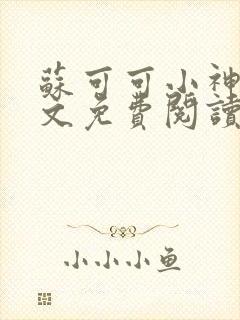 蘇可可小神
文免費閱讀
小小小鱼